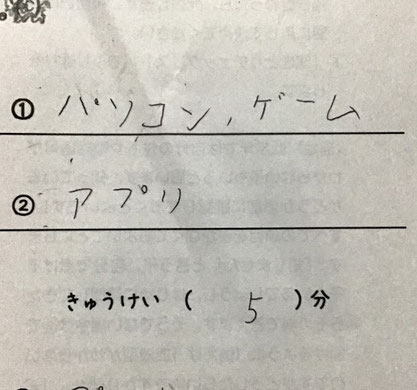 ① パソコン、ゲーム
② アプリ
きゅうけい ( 5 )分